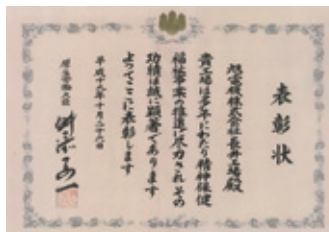 表彰状
旭電機株式会社長井工場殿
貴工場は多年にわたり精神保健
福祉事業の推進に尽力されその
功績は誠に顕著であります
よってここに表彰します
平成十八年十月二十六日
厚生労働大臣